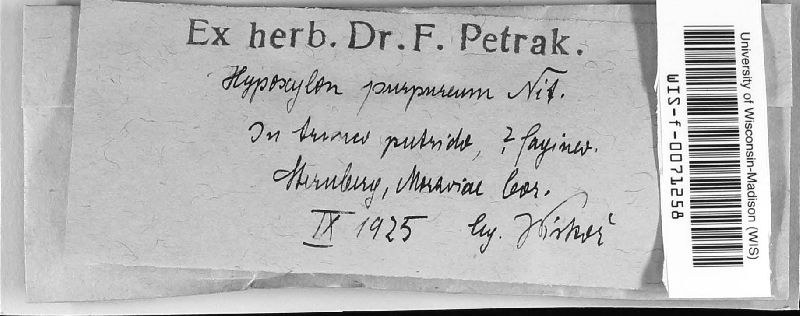 Ex herb. Dr. F. Petrak.
Hypoxylon purpureum Nit.
In trunco putrido, ? fagineo.
Sternberg, Moraviae bor.
IX 1925 leg. Piskoř
University of Wisconsin-Madison (WIS)
WIS-f-0071258